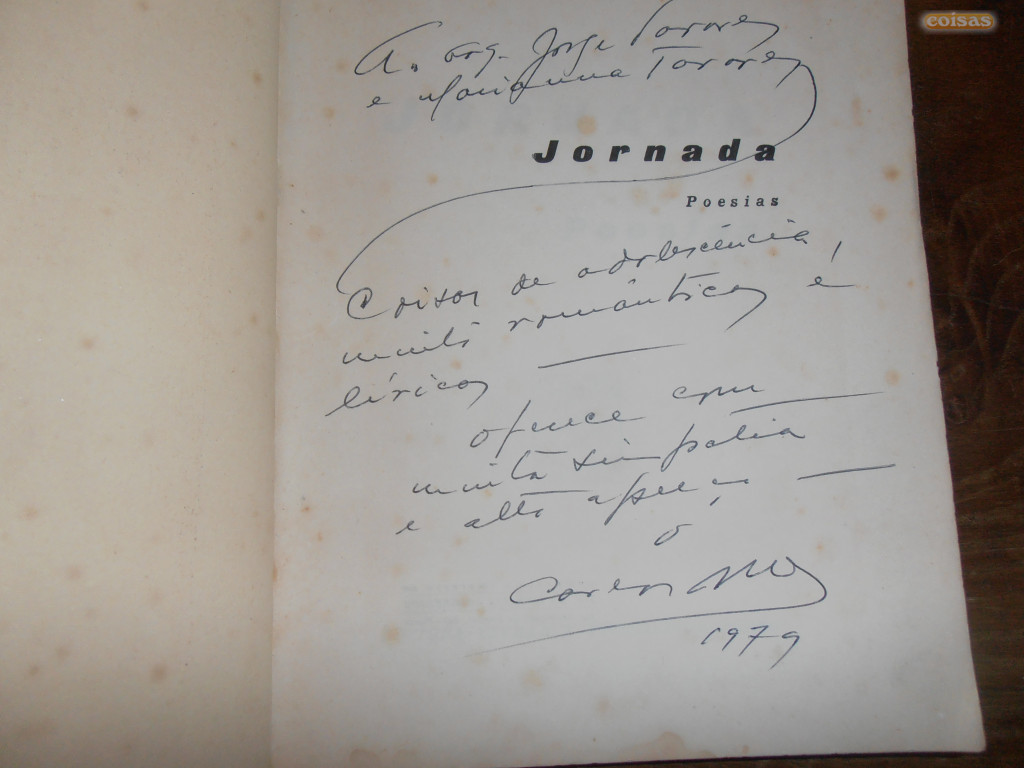 coisas
A. Arq. Jorge Torres
e Marianna Torres
Jornada
Poesias
Coisas de adolescência,
muito românticas e
líricas
oferece com
muita simpatia
e alto apreço
o
Carlos
1979